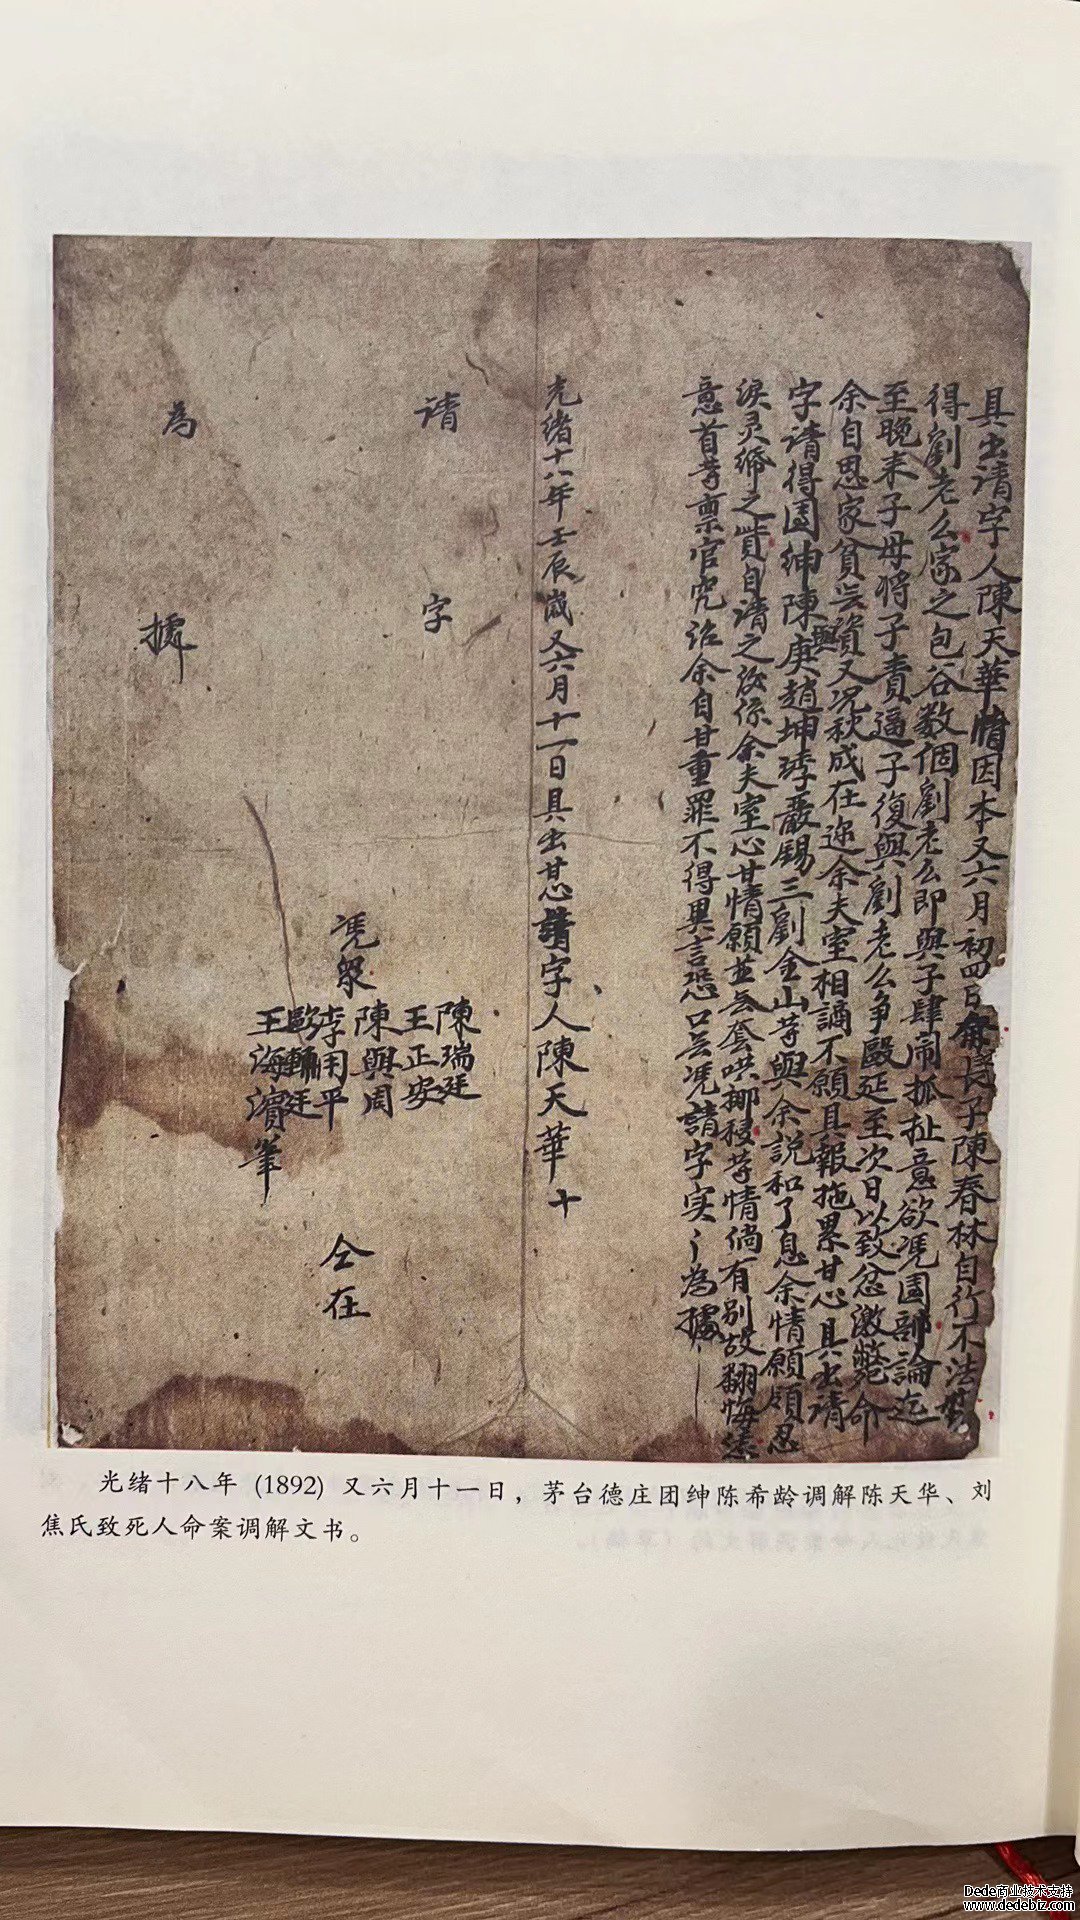 具出请字人陳天華情因本又六月初四日余長子陳春林自行不法
得劉老么家之包谷数個劉老么即與子肆闹抓扯意欲凭團部論迄
至晚来子母將子責逼子復與劉老么争毆延至次日以致忿激斃命
余自思家貧無資又况秋成在迩余夫室相謫不願具報拖累甘心具出请
字请得團紳陳庚趙坤李嚴錫三劉金山等與余説和了息余情願領忍
淚灵縡之貲自请之後係余夫室心甘情願並無套哄挪移等情倘有别故翻悔
意首等禀官究治余自甘重罪不得異言恐口無凭請字实〻為據
光绪十八年壬辰歲又六月十一日具出甘心請字人陳天華十
请字
陳瑞廷
王正安
陳興周
凭眾
李用平
王海濱筆
仝在
為據
光绪十八年 (1892) 又六月十一日，茅台德庄团绅陈希龄调解陈天华、刘
焦氏致死人命案调解文书。
Dede商业技术支持
www.dedebiz.com